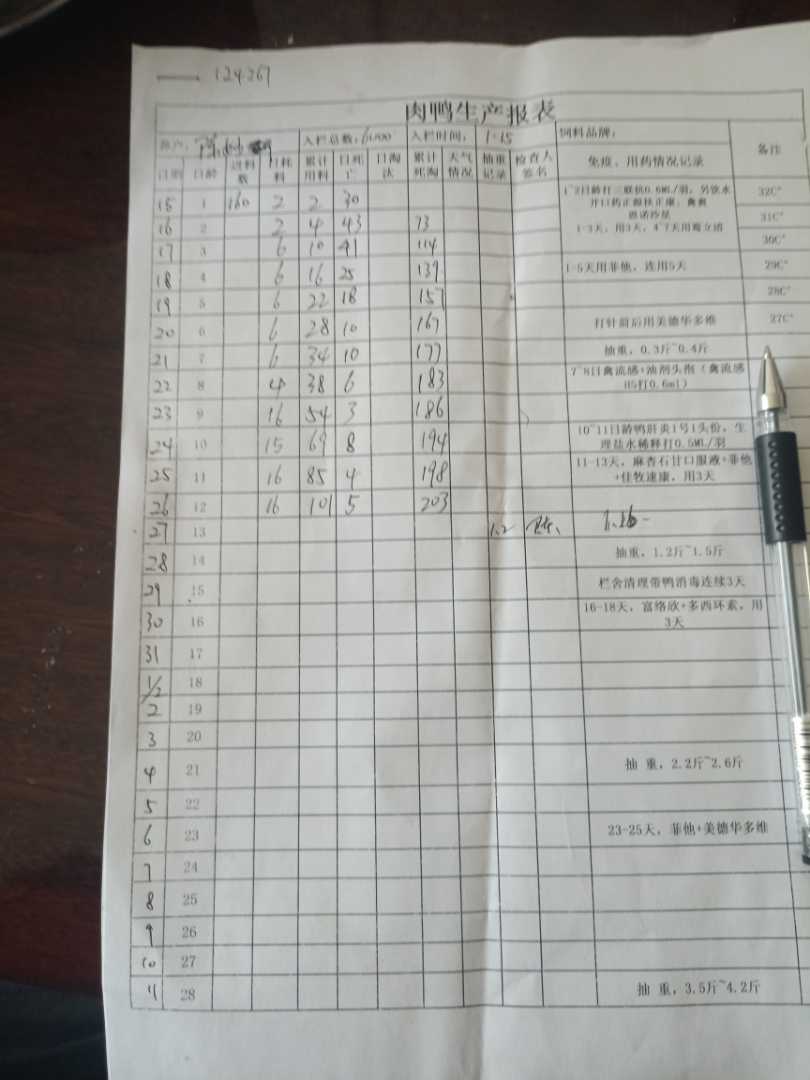 124267
肉鸭生产报表
入栏总数: 入栏时间: 1.15 饲料品牌:
日期 日龄 进料数 日耗料 累计用料 日死亡 日淘汰 累计死淘 天气情况 抽重记录 检查人签名 免疫、用药情况记录 备注
15 1 160 2 2 30 32C°
16 2 2 4 43 73 31C°
17 3 6 10 41 114 30C°
1~2日龄打三联抗0.6ML/羽,另饮水
1-3天,用3天,4~7天用
18 4 6 16 25 139 1-5天用菲他,连用5天 29C°
19 5 6 22 18 157 28C°
20 6 6 28 10 167 打针前后用美德华多维 27C°
21 7 6 34 10 177 抽重,0.3斤~0.4斤
22 8 4 38 6 183 7~8日禽流感+油剂头孢(禽流感H5打0.6ml)
23 9 16 54 3 186
24 10 15 69 8 194 10~11日龄鸭肝炎1号1头份,生理盐水稀释打0.5ML/羽
25 11 16 85 4 198 11-13天,麻杏石甘口服液+菲他+佳牧速康,用3天
26 12 16 101 5 203
27 13 1.2 1.26
28 14 抽重,1.2斤~1.5斤
29 15 栏舍清理带鸭消毒连续3天
30 16 16-18天,富络欣+多西环素,用3天
31 17
1/2 18
2 19
3 20
4 21 抽 重,2.2斤~2.6斤
5 22
6 23 23-25天,菲他+美德华多维
7 24
8 25
9 26
10 27
11 28 抽 重,3.5斤~4.2斤